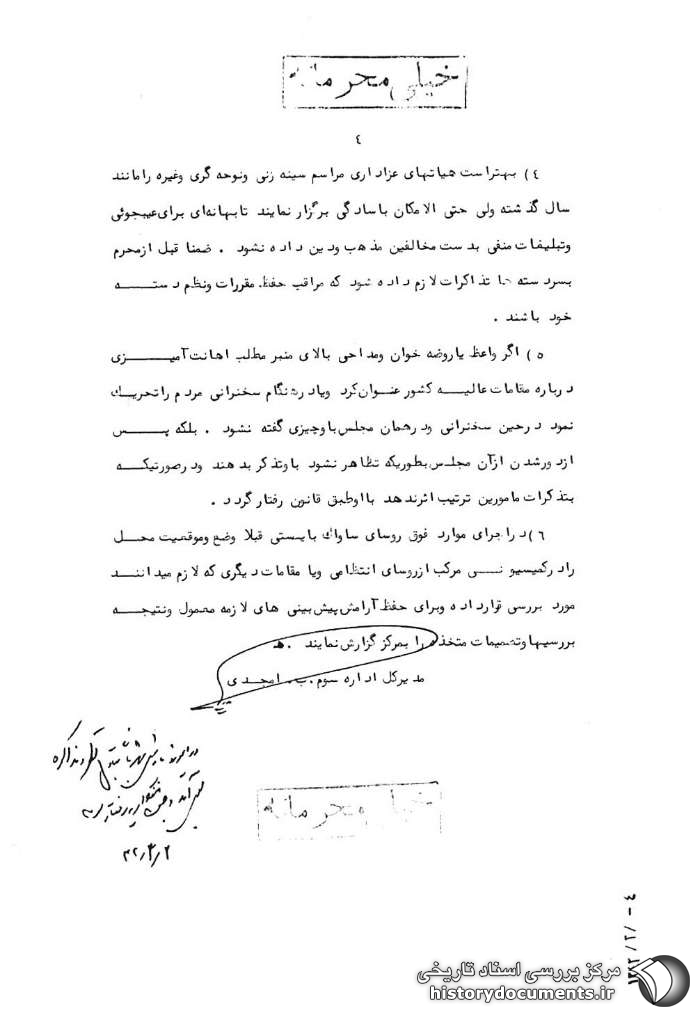 خیلی محرمانه
٤
٤) بهتراست هیاتهای عزاداری مراسم سینه زنی ونوحه گری وغیره رامانند
سال گذشته ولی حتی الامکان باسادگی برگزار نمایند تابهانه‌ای برای عیبجوئی
وتبلیغات منفی بدست مخالفین مذهب ودین داده نشود . ضمنا قبل ازمحرم
بسردسته ها تذاکرات لازم داده شود که مراقب حفظ مقررات ونظم دسته
خود باشند .
٥) اگر واعظ یاروضه خوان ومداحی بالای منبر مطلب اهانت آمیزی
درباره مقامات عالیه کشور عنوان کرد ویادرهنگام سخنرانی مردم راتحریك
نمود درحین سخنرانی ودرهمان مجلس باوچیزی گفته نشود . بلکه پس
ازدورشدن ازآن مجلس بطوریکه تظاهر نشود باوتذکر بدهند ودرصورتیکه
بتذکرات مامورین ترتیب اثرندهد بااوطبق قانون رفتارگردد .
٦) دراجرای موارد فوق روسای ساواك بایستی قبلا وضع وموقعیت محل
رادرکمیسیونی مرکب ازروسای انتظامی ویا مقامات دیگری که لازم میدانند
مورد بررسی قرارداده وبرای حفظ آرامش پیش بینی های لازمه معمول ونتیجه
بررسیهاوتصمیمات متخذه را بمرکز گزارش نمایند . ه
مدیرکل اداره سوم . ب . امجدی
خیلی محرمانه
مرکز بررسی اسناد تاریخی
historydocuments.ir